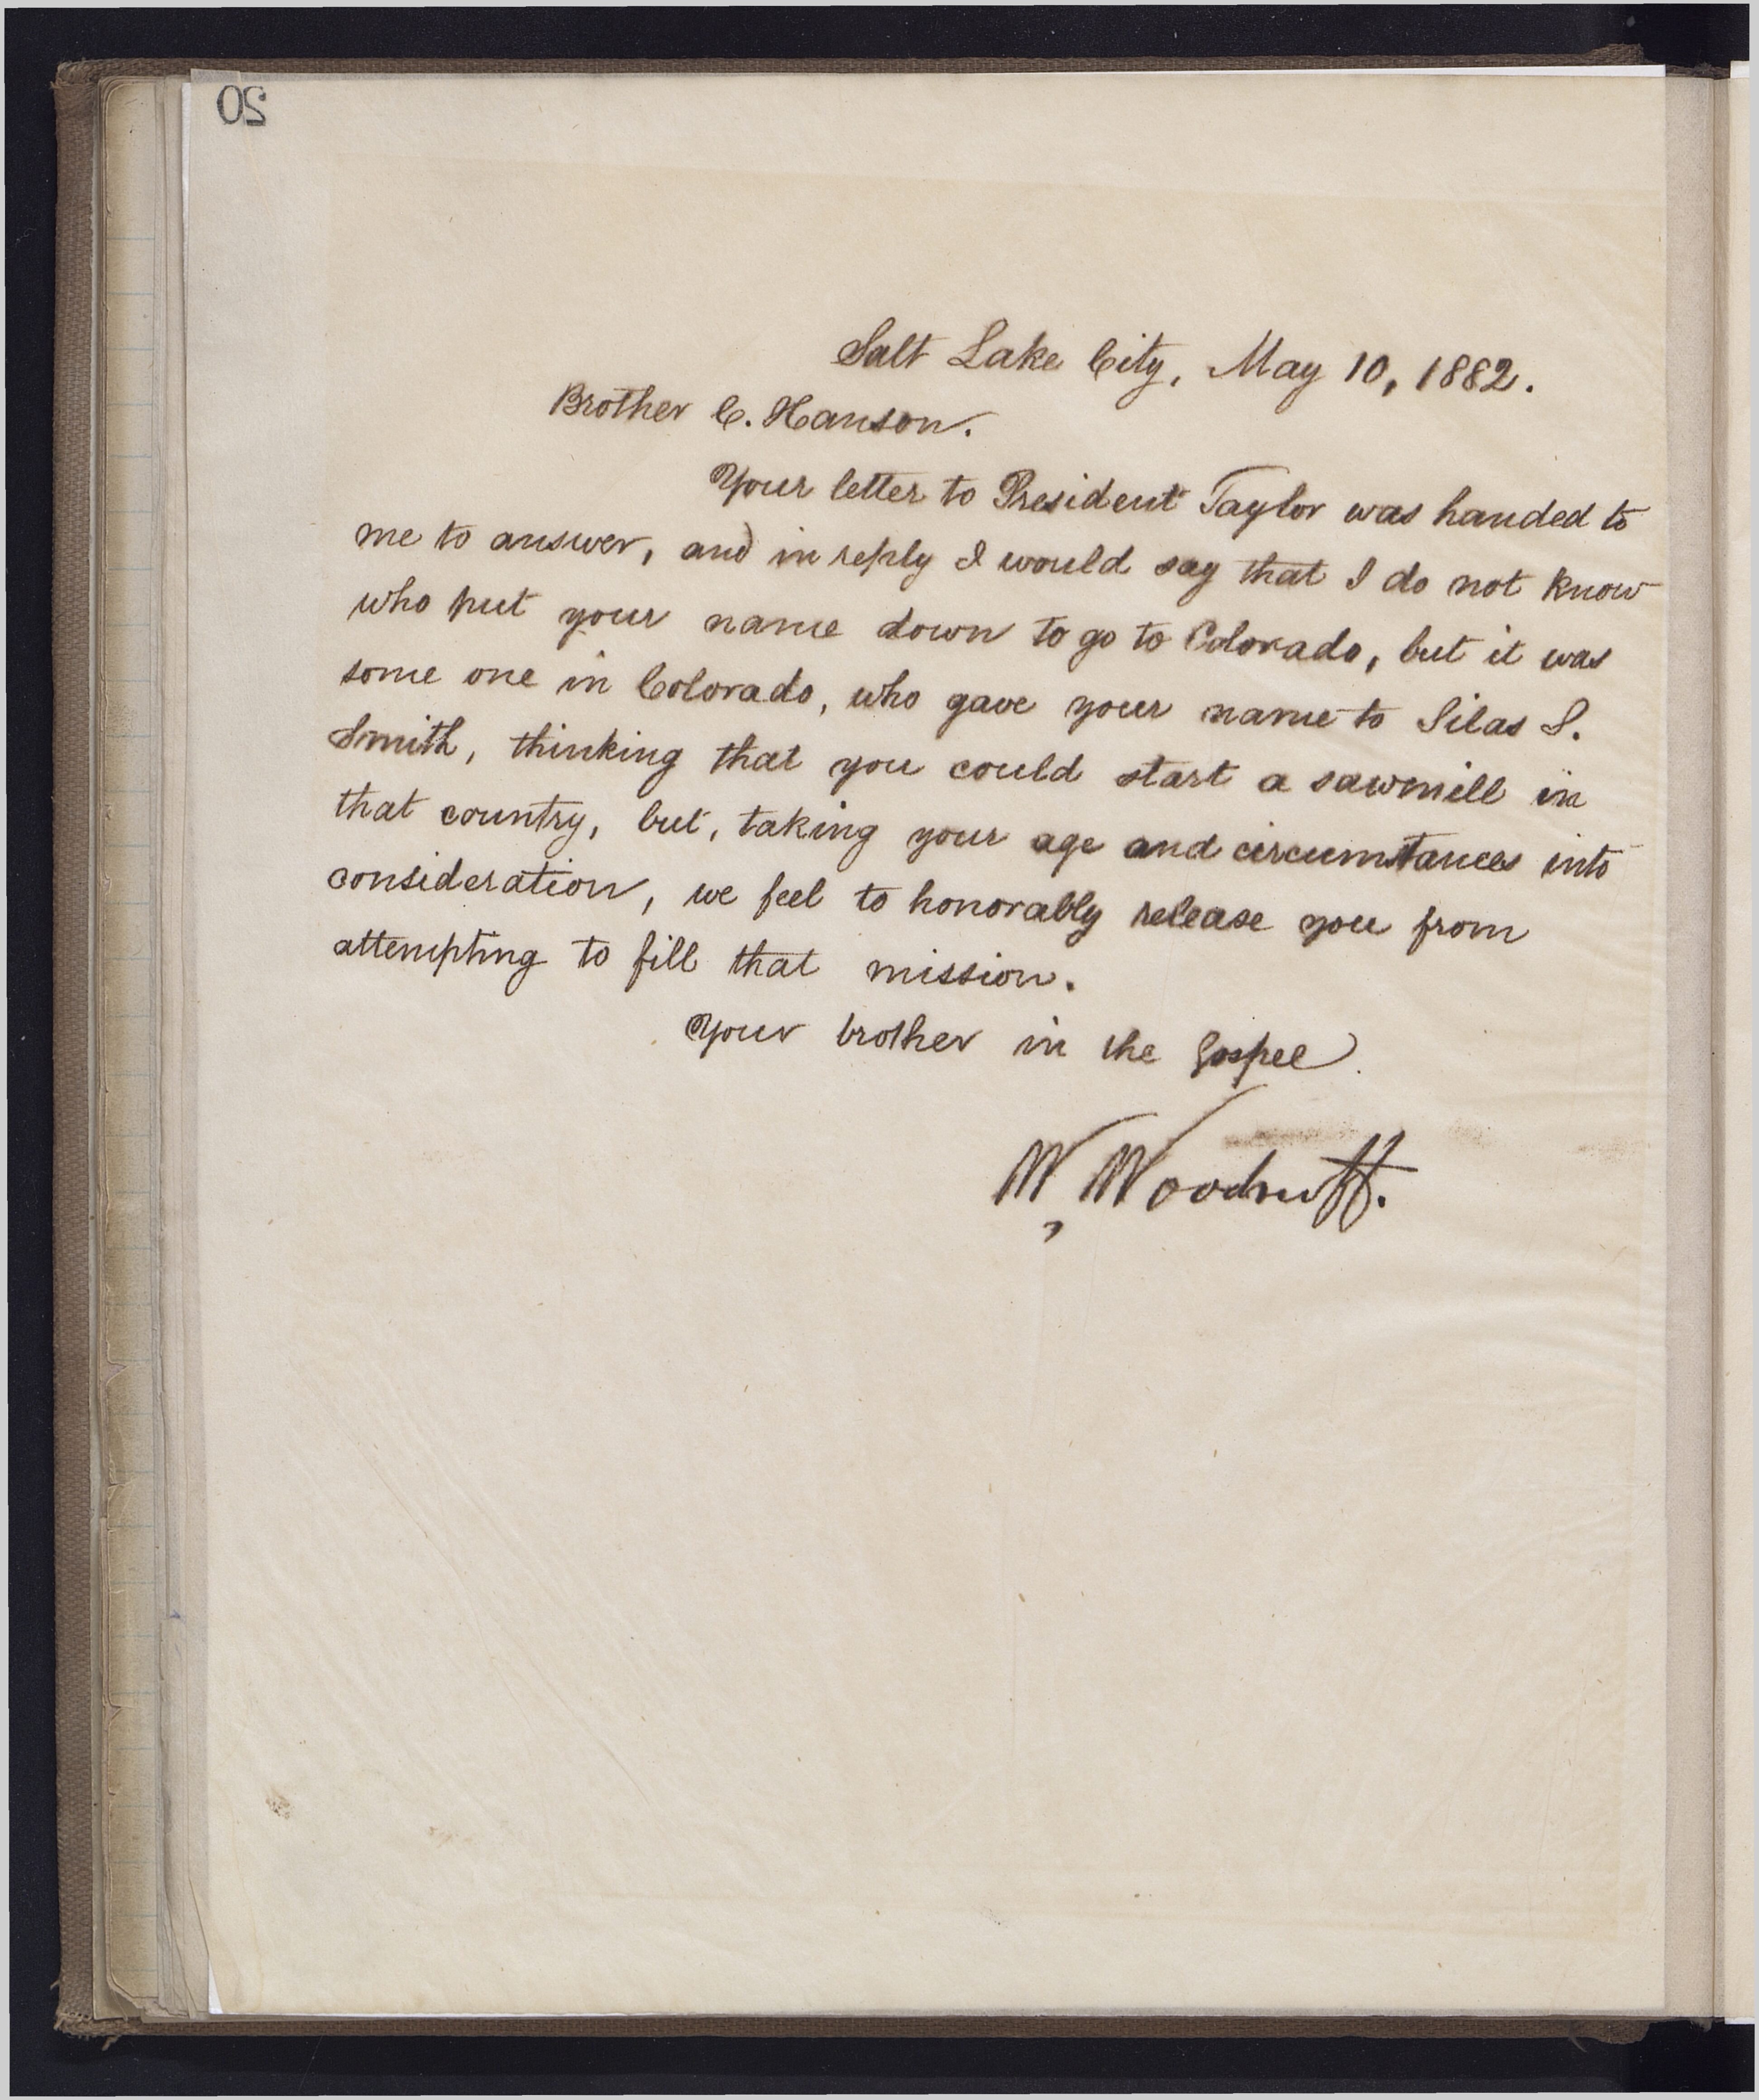 20
Salt Lake City, May 10, 1882.
Brother C. Hanson.
Your letter to President Taylor was handed to
me to answer, and in reply I would say that I do not know
who put your name down to go to Colorado, but it was
some one in Colorado, who gave your name to Silas S.
Smith, thinking that you could start a sawmill in
that country, but, taking your age and circumstances into
consideration, we feel to honorably release you from
attempting to fill that mission.
Your brother in the Gospel
W. Woodruff.